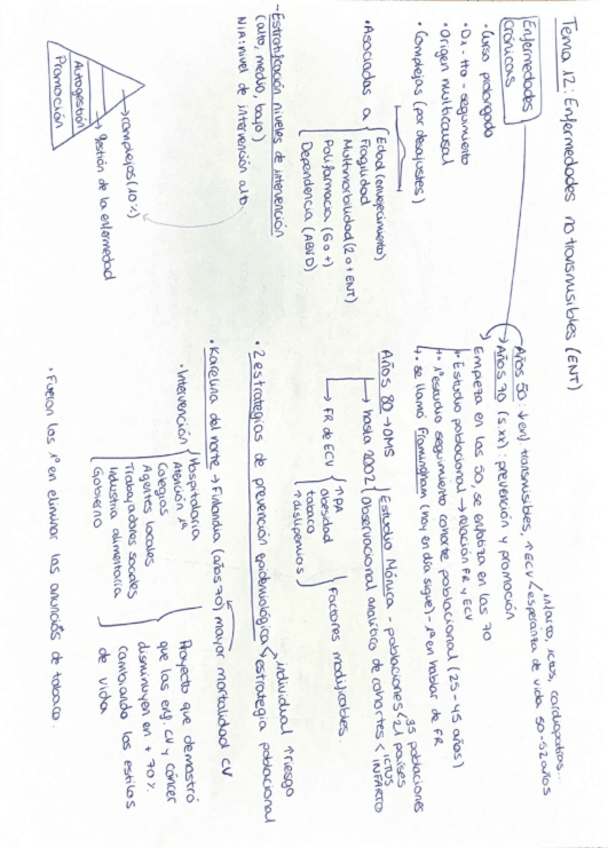 Tema 12: Enfermedades no transmisibles (ENT)
Enfermedades
crónicas
· Curso prolongado
· Dx - tto - seguimiento
· Origen multicausal
· Complejas (por desajustes)
· Asociadas a
Edad (envejecimiento)
Fragilidad
Multimorbilidad (2 o + ENT)
Polifarmacia (6 o +)
Dependencia (ABVD)
- Estratificación niveles de intervención
(alto, medio, bajo)
NIA: nivel de intervención alto
→ complejos (10%)
→ gestión de la enfermedad
Autogestión
Promoción
infarto, ictus, cardiopatías...
Años 50: ↓ enf. transmisibles, ↑ ECV < esperanza de vida 50-52 años
→ Años 70 (s. XX): prevención y promoción
Empieza en los 50, se enfatiza en los 70
Estudio poblacional → relación FR y ECV
1º estudio seguimiento cohorte poblacional (25-45 años)
se llamó Framingham (hoy en día sigue) - 1º en hablar de FR
Años 80 → OMS
Estudio Mónica - poblaciones < 35 poblaciones
21 países
→ hasta 2002
Observacional analítico de cohortes < ICTUS
INFARTO
→ FR de ECV
↑ PA
obesidad
tabaco
↑ dislipemias
Factores modificables.
· 2 estrategias de prevención epidemiológica
individual ↑ riesgo
estrategia poblacional
· Karelina del norte → Finlandia (años 70) mayor mortalidad CV
· Intervención
Hospitalaria
Atención 1ª
Colegios
Agentes locales
Trabajadores sociales
Industria alimentaria
Gobierno
Proyecto que demostró
que las enf. CV y cáncer
disminuyen en + 70%
cambiando los estilos
de vida
· Fueron los 1º en eliminar los anuncios de tabaco.